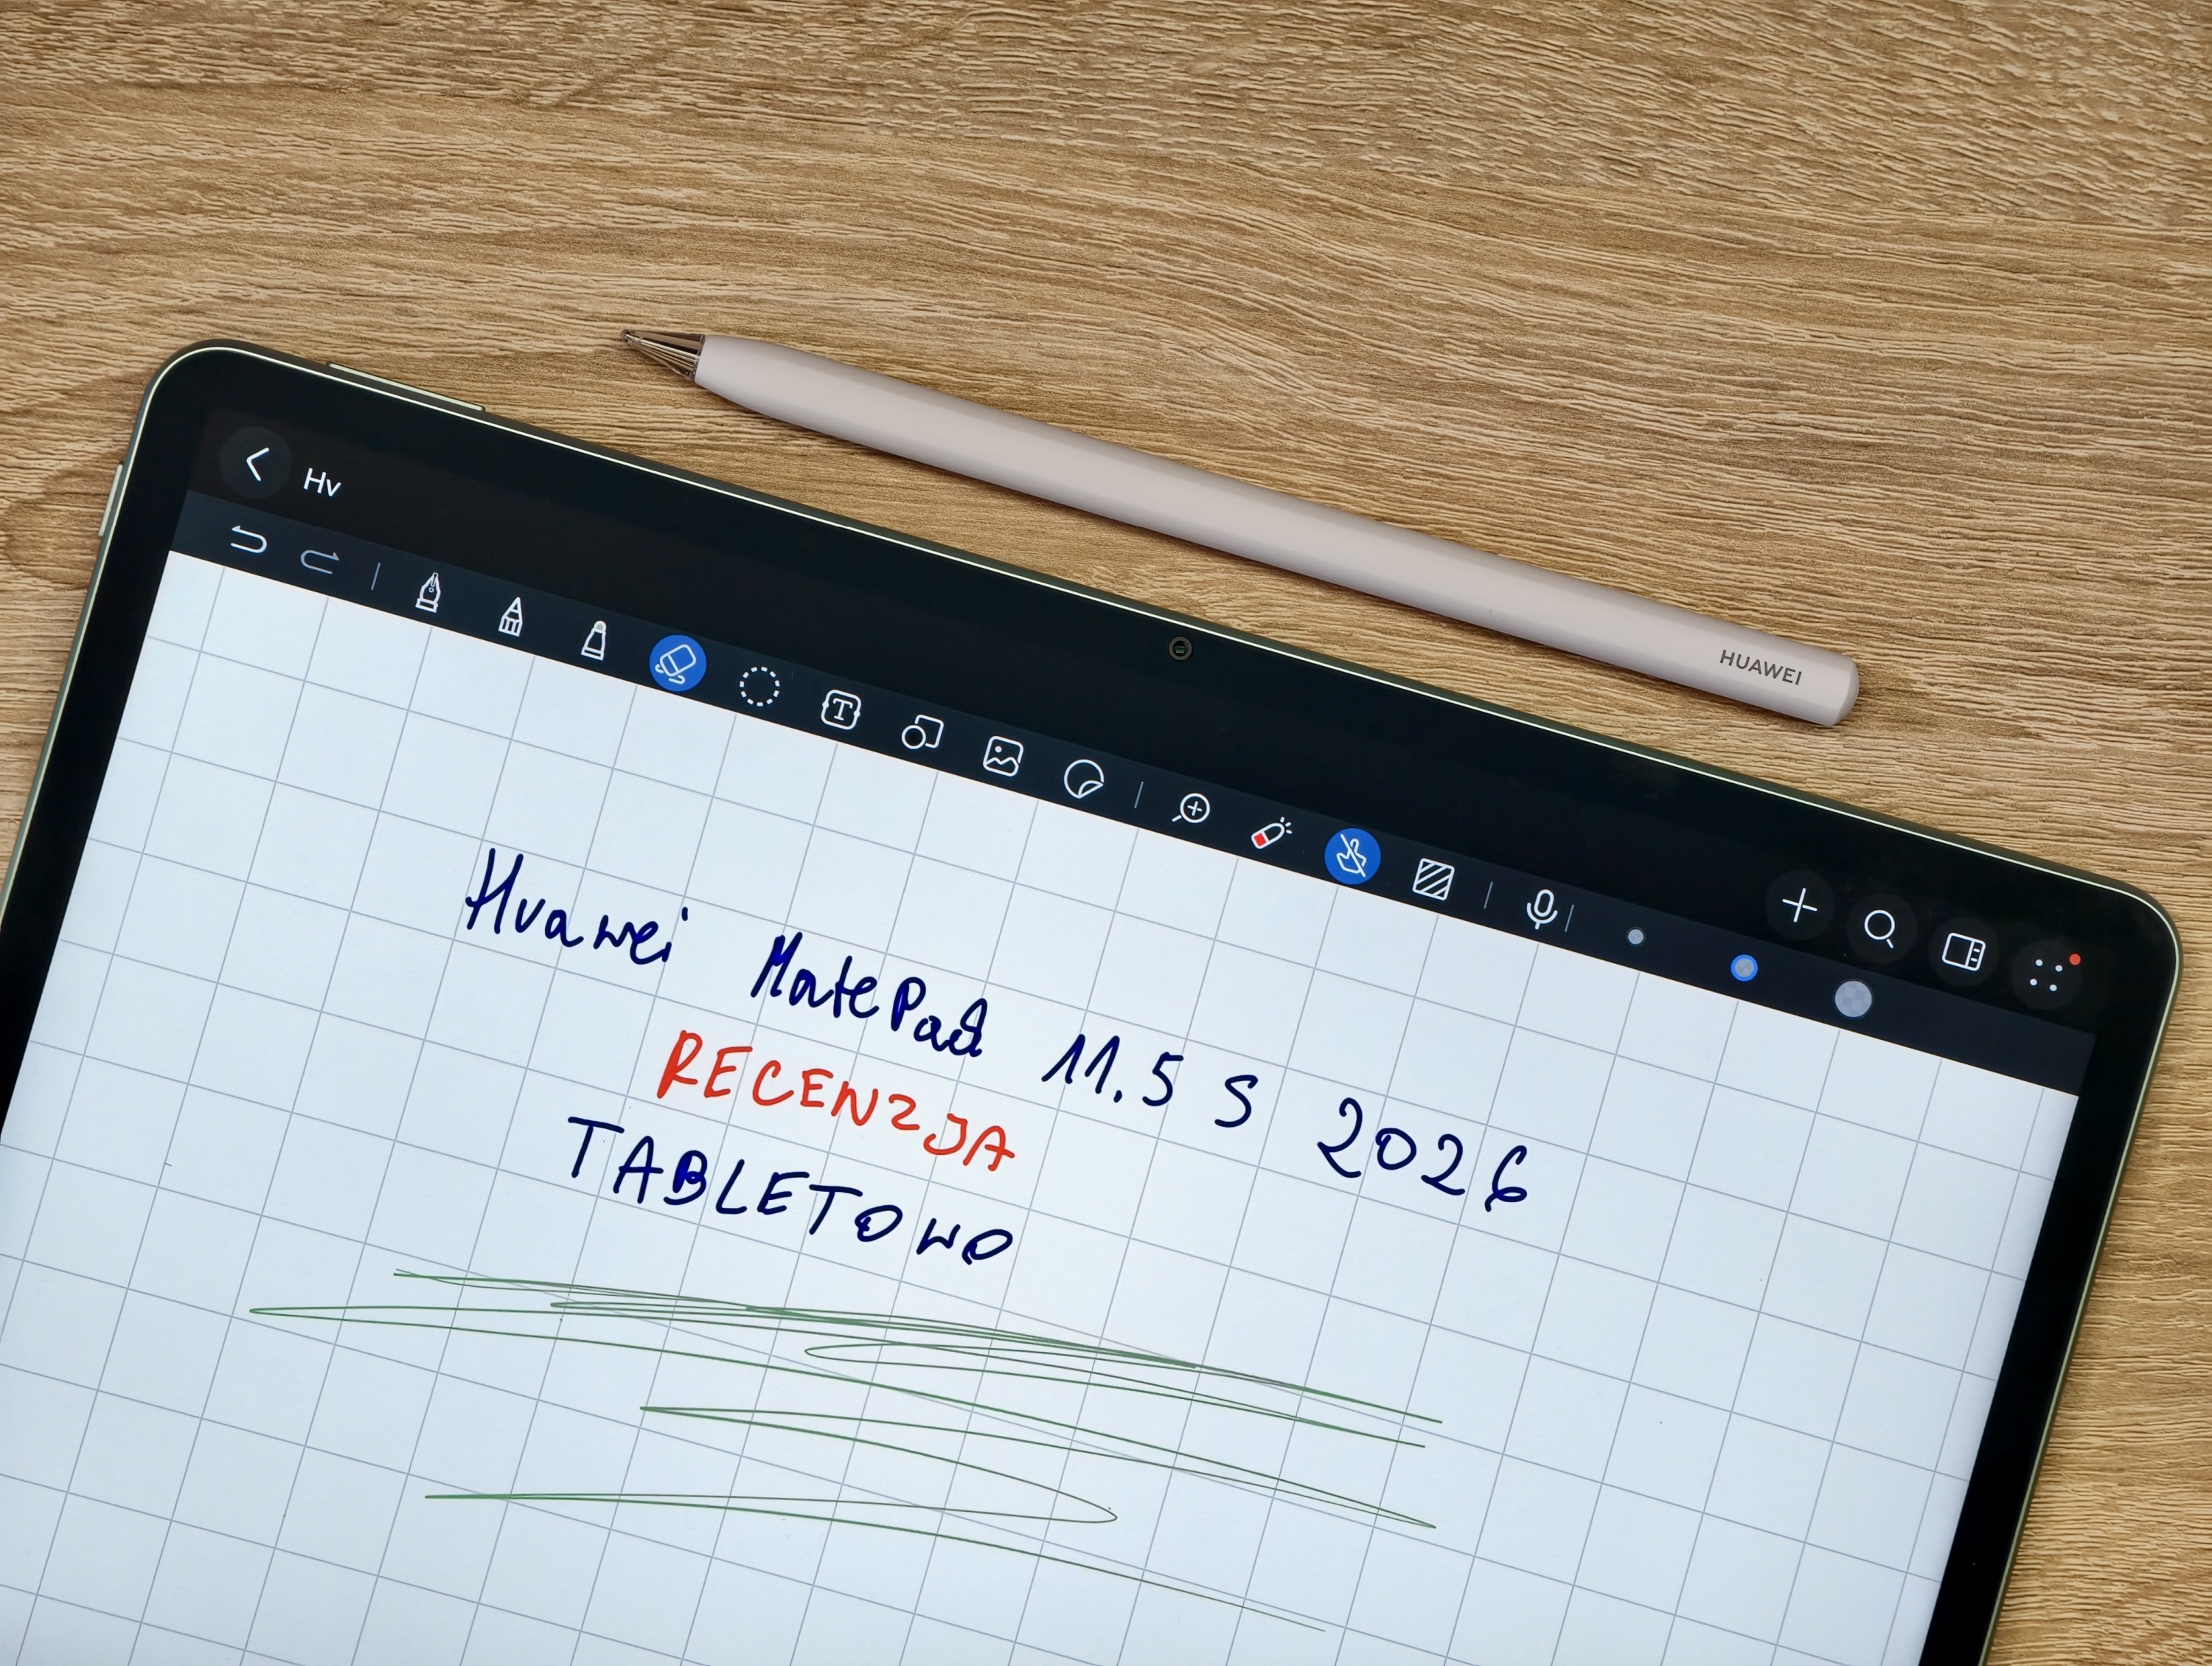 HUAWEI
Hv
Huawei MatePad 11.5 S 2026
RECENZJA
TABLETOWO